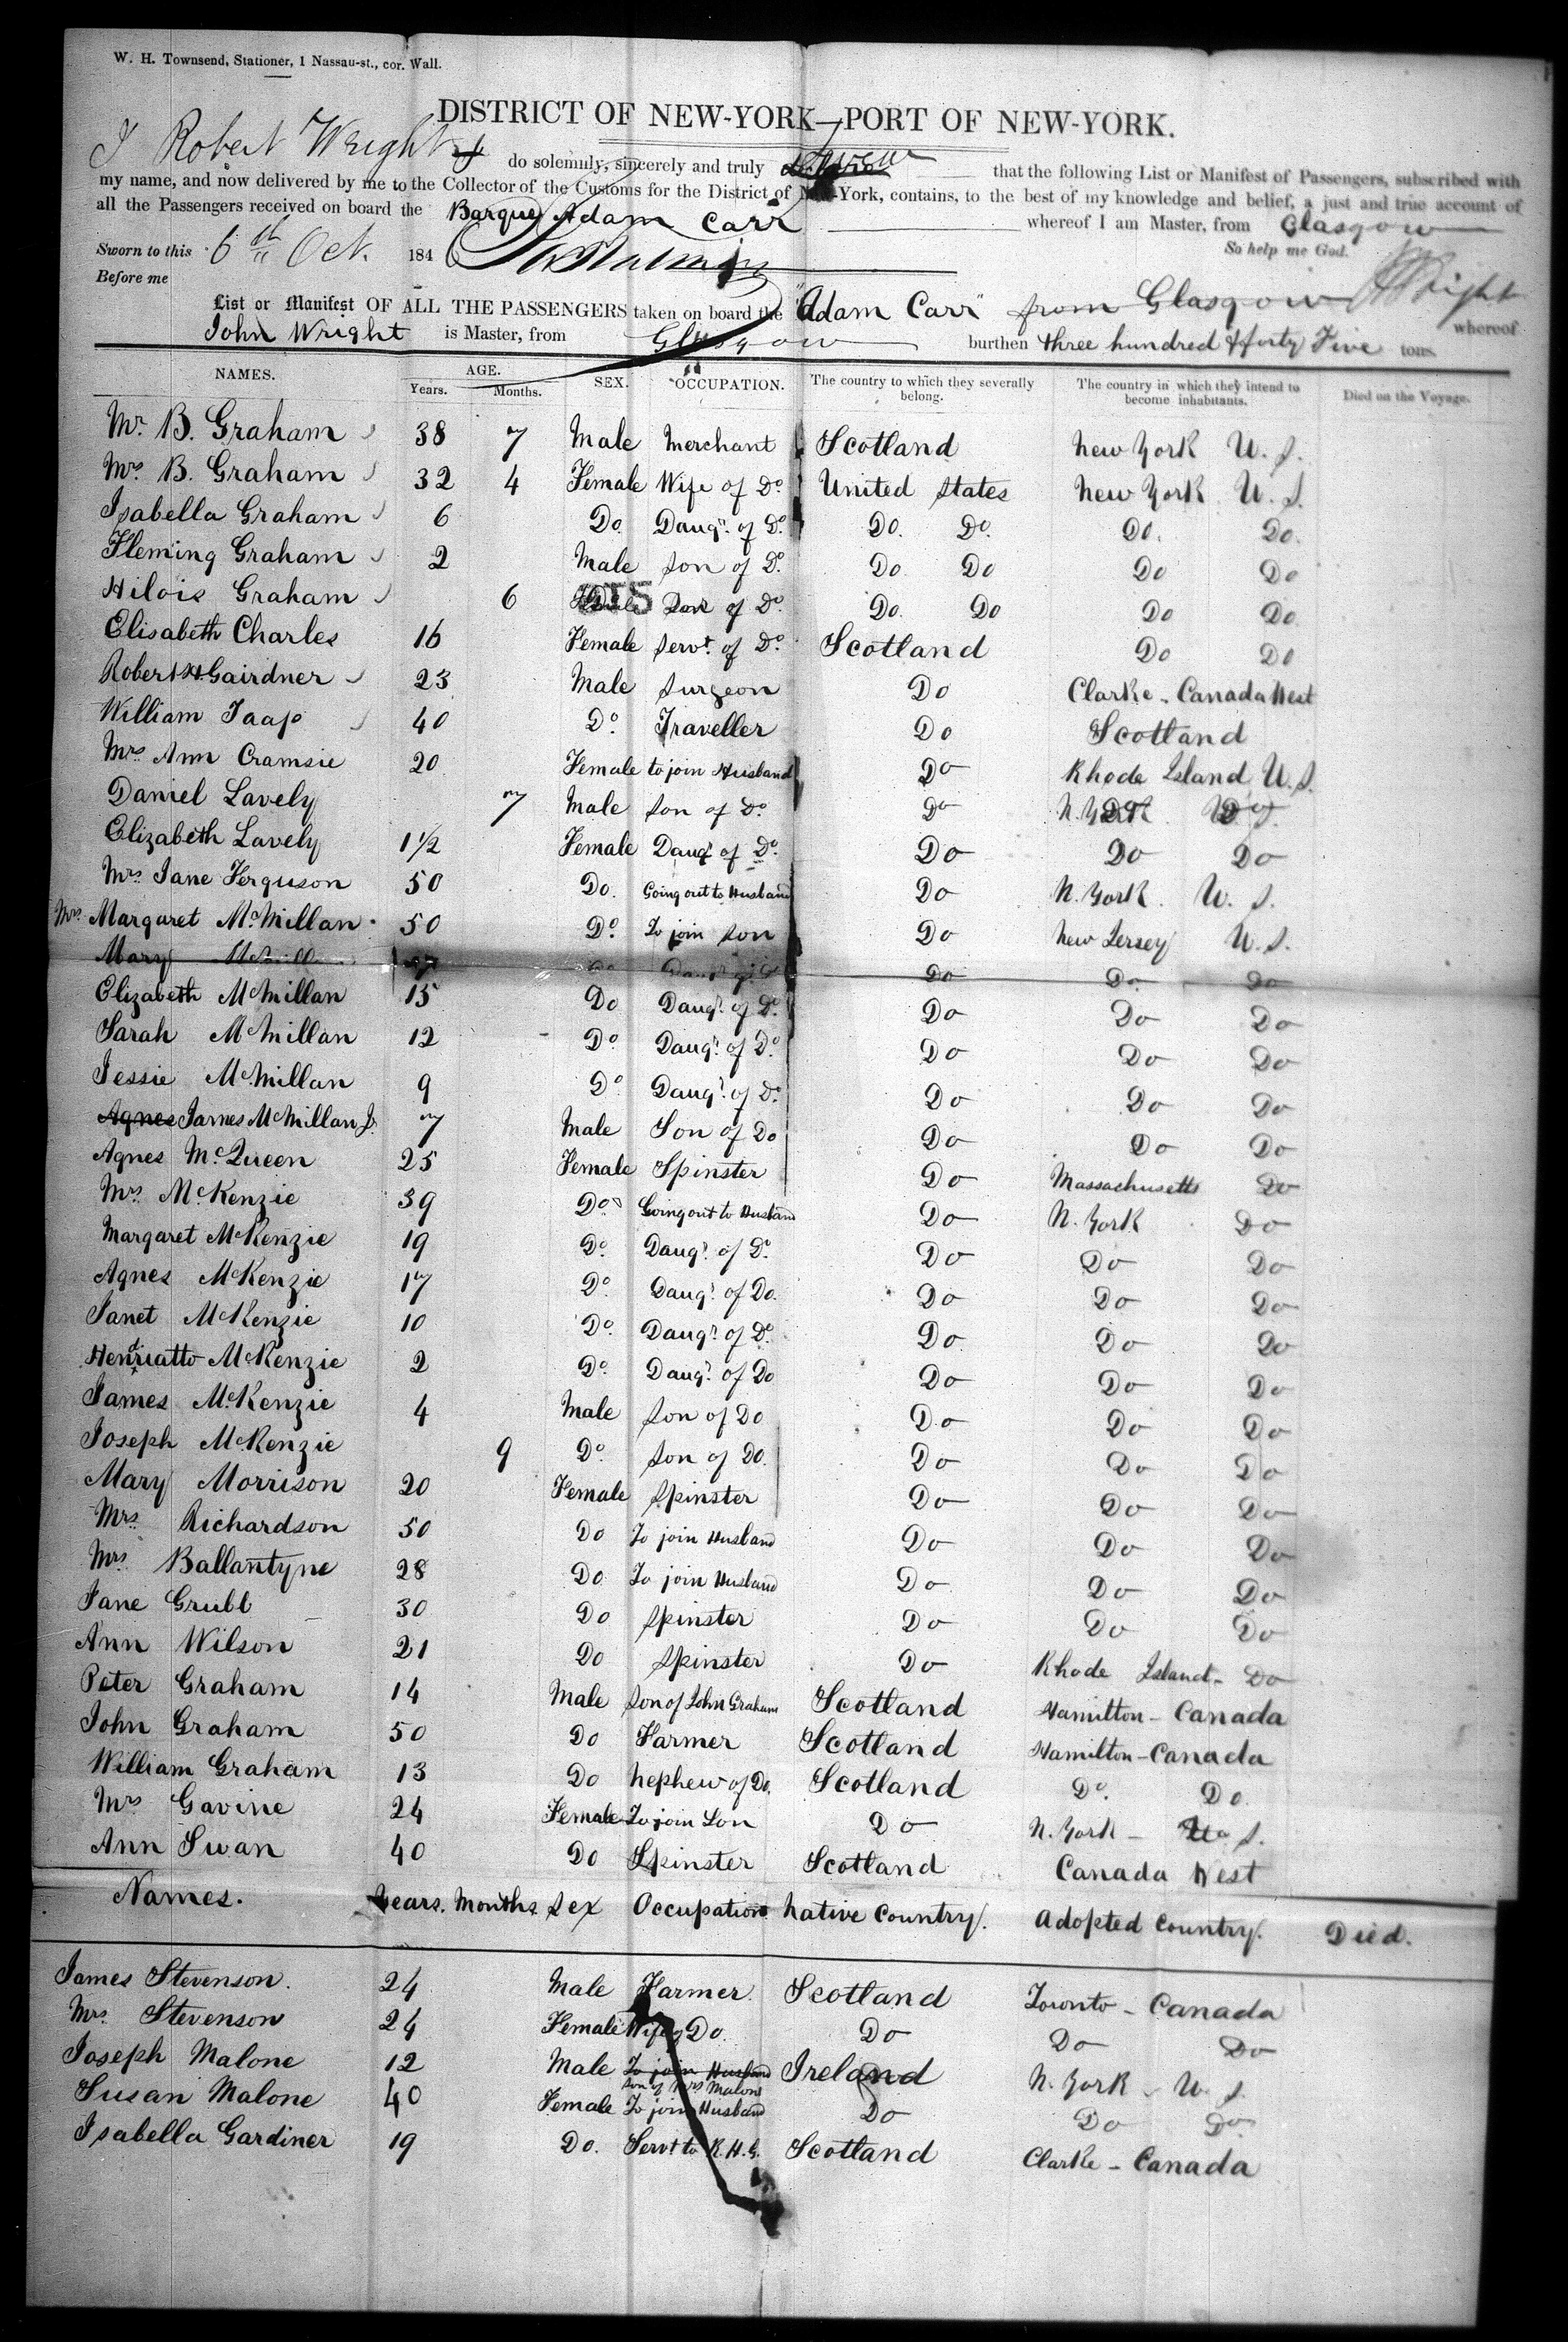 W. H. Townsend, Stationer, 1 Nassau-st., cor. Wall.
DISTRICT OF NEW-YORK—PORT OF NEW-YORK.
I Robert Wright do solemnly, sincerely and truly swear that the following List or Manifest of Passengers, subscribed with
my name, and now delivered by me to the Collector of the Customs for the District of New-York, contains, to the best of my knowledge and belief, a just and true account of
all the Passengers received on board the Barque Adam Carr whereof I am Master, from Glasgow
Sworn to this 6th Oct. 1846 So help me God.
Before me
List or Manifest OF ALL THE PASSENGERS taken on board the "Adam Carr" from Glasgow R Wright whereof
John Wright is Master, from Glasgow burthen three hundred & forty Five tons.
NAMES. AGE. SEX. OCCUPATION. The country to which they severally belong. The country in which they intend to become inhabitants. Died on the Voyage.
Years. Months.
Mr. B. Graham 38 7 Male Merchant Scotland New York U. S.
Mrs B. Graham 32 4 Female Wife of Do. United States New York U. S.
Isabella Graham 6 Do. Daugr. of Do. Do. Do. Do. Do.
Fleming Graham 2 Male Son of Do. Do Do Do Do
Hilois Graham 6 Son of Do. Do. Do Do Do.
Elisabeth Charles 16 Female Servt. of Do. Scotland Do Do
Robert H Gairdner 23 Male Surgeon Do Clarke - Canada West
William Taap 40 Do. Traveller Do Scotland
Mrs Ann Cramsie 20 Female to join Husband Do Rhode Island U. S.
Daniel Lavely 7 Male Son of Do. Do N. York U. S.
Elizabeth Lavely 1 1/2 Female Daugr of Do. Do Do Do
Mrs. Jane Ferguson 50 Do. Going out to Husband Do N. York. U. S.
Mrs. Margaret McMillan 50 Do. To join Son Do New Jersey U. S.
Mary McMillan Do Daugr of Do Do Do Do
Elizabeth McMillan 15 Do Daugr. of Do. Do Do Do
Sarah McMillan 12 Do. Daugr. of Do. Do Do Do
Jessie McMillan 9 Do Daugr. of Do. Do Do Do
Agnes James McMillan Jr. 7 Male Son of Do Do Do Do
Agnes McQueen 25 Female Spinster Do Massachusetts Do
Mrs McKenzie 39 Do. Going out to Husband Do N. York Do
Margaret McKenzie 19 Do. Daugr. of Do. Do Do Do
Agnes McKenzie 17 Do. Daugr. of Do. Do Do Do
Janet McKenzie 10 Do. Daugr. of Do. Do. Do Do
Henriatto McKenzie 2 Do. Daugr. of Do Do Do Do
James McKenzie 4 Male Son of Do Do Do Do
Joseph McKenzie 9 Do. Son of Do. Do Do Do
Mary Morrison 20 Female Spinster Do Do Do
Mrs. Richardson 50 Do To join Husband Do Do Do
Mrs. Ballantyne 28 Do. To join Husband Do Do Do
Jane Grubb 30 Do Spinster Do Do Do
Ann Wilson 21 Do Spinster Do Rhode Island - Do
Peter Graham 14 Male Son of John Graham Scotland Hamilton - Canada
John Graham 50 Do Farmer Scotland Hamilton - Canada
William Graham 13 Do Nephew of Do. Scotland Do. Do.
Mrs Gavine 24 Female To join Son Do N. York - U. S.
Ann Swan 40 Do Spinster Scotland Canada West
Names. Years. Months. Sex Occupation Native Country. Adopted Country. Died.
James Stevenson. 24 Male Farmer. Scotland Toronto - Canada
Mrs. Stevenson 24 Female Wife of Do. Do Do Do
Joseph Malone 12 Male To join Husband Ireland N. York - U. S.
Son of Mrs Malone
Susan Malone 40 Female To join Husband Do Do Do.
Isabella Gardiner 19 Do. Servt to R. H. G. Scotland Clarke - Canada